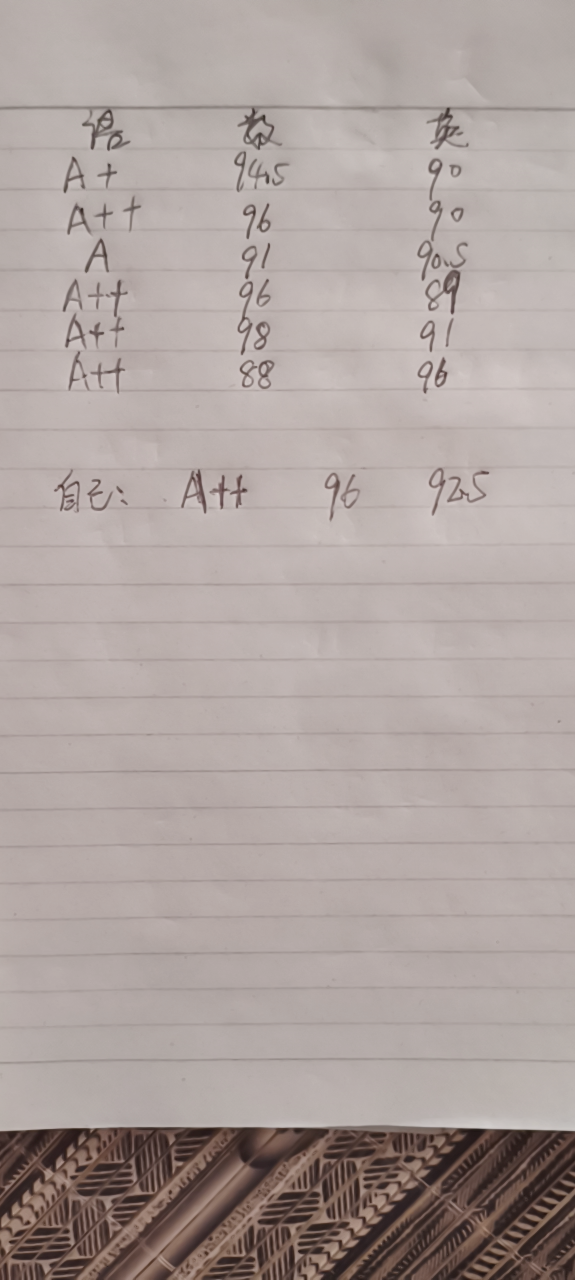 语 数 英
A+ 94.5 90
A++ 96 90
A 91 90.5
A++ 96 89
A++ 98 91
A++ 88 96
自己: A++ 96 92.5